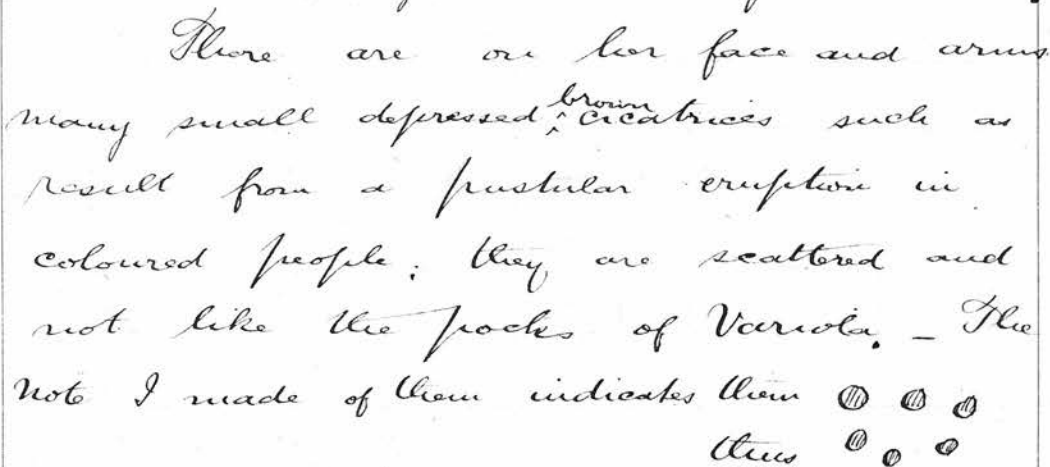 There are on her face and arms
many small depressed ^brown cicatrices such as
result from a pustular eruption in
coloured people; they are scattered and
not like the pocks of Variola. – The
note I made of them indicates them
thus